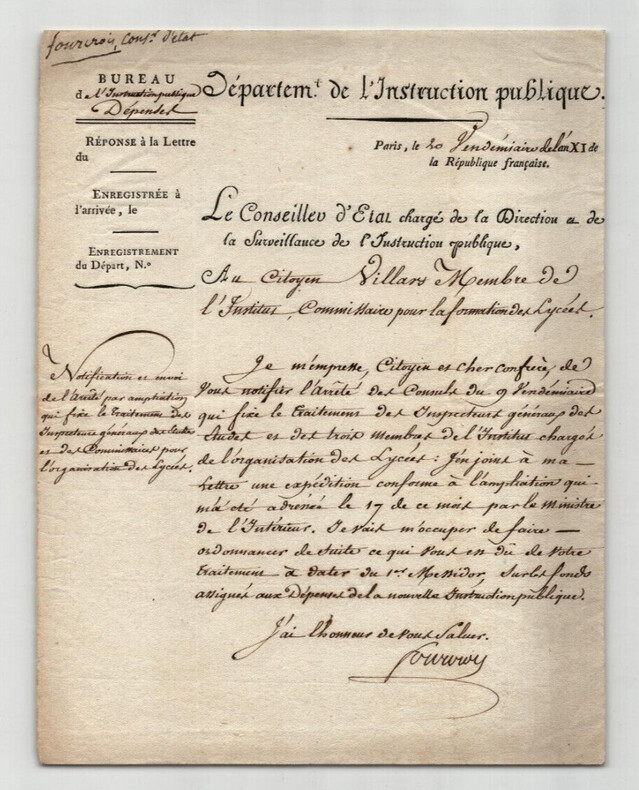 fourcroix, Cons.r d'état
BUREAU
de l'Instruction publique
Dépenses
RÉPONSE à la Lettre
du
ENREGISTRÉE à
l'arrivée, le
ENREGISTREMENT
du Départ, N.o
Départem.t de l'Instruction publique.
Paris, le 20 Vendémiaire de l'an XI de
la République française.
Le Conseiller d'Etat chargé de la Direction et de
la Surveillance de l'Instruction publique,
Au Citoyen Villars Membre de
l'Institut, Commissaire pour la formation des Lycées.
Notification et envoi
de l'Arrêté par ampliation
qui fixe le traitement des
Inspecteurs généraux des Etudes
et des Commissaires pour
l'organisation des Lycées.
Je m'empresse, Citoyen et cher confrère, de
Vous notifier l'Arrêté des Consuls du 9 Vendémiaire
qui fixe le traitement des Inspecteurs généraux des
Etudes et des trois membres de l'Institut chargés
de l'organisation des Lycées : J'en joins à ma
Lettre une expédition conforme à l'ampliation qui
m'a été adressée le 17 de ce mois par le ministre
de l'Intérieur. Je vais m'occuper de faire
ordonnancer de suite ce qui vous est dû de votre
traitement à dater du 1.er Messidor, sur les fonds
assignés aux Dépenses de la nouvelle Instruction publique.
J'ai l'honneur de vous Saluer.
Fourcroy